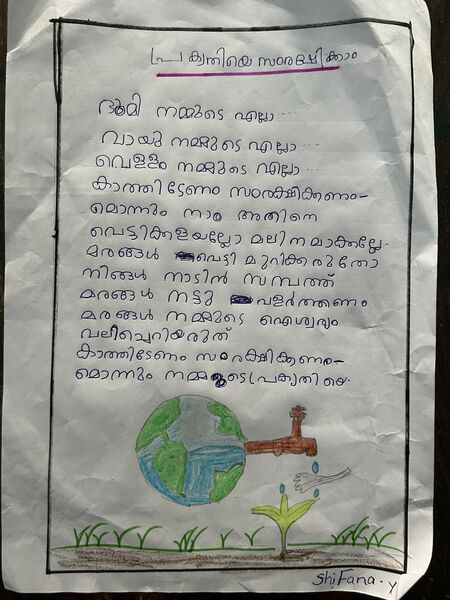 പ്രകൃതിയെ സംരക്ഷിക്കാം
ഭൂമി നമ്മുടെ എല്ലാ ...
വായു നമ്മുടെ എല്ലാ ...
വെള്ളം നമ്മുടെ എല്ലാ ...
കാത്തിടേണം സംരക്ഷിക്കണം-
മൊന്നും നാം അതിനെ
വെട്ടിക്കളയല്ലേ മലിനമാക്കല്ലേ.
മരങ്ങൾ വെട്ടി മുറിക്കരുതോ
നിങ്ങൾ നാടിൻ സമ്പത്ത്
മരങ്ങൾ നട്ടു വളർത്തണം
മരങ്ങൾ നമ്മുടെ ഐശ്വര്യം
വലിച്ചെറിയരുത്
കാത്തിടേണം സംരക്ഷിക്കണം-
മൊന്നും നമ്മളുടെ പ്രകൃതിയെ.
Shifana. Y